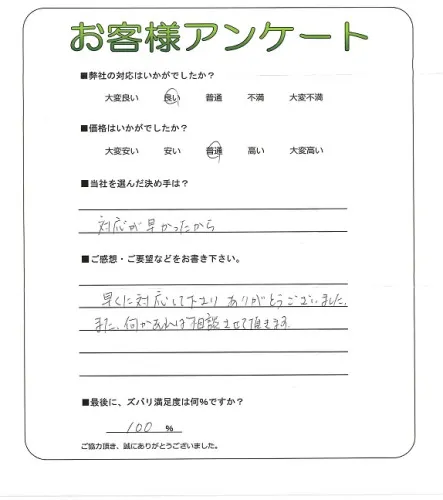 お客様アンケート
■弊社の対応はいかがでしたか？
大変良い 良い 普通 不満 大変不満
■価格はいかがでしたか？
大変安い 安い 普通 高い 大変高い
■当社を選んだ決め手は？
対応が早かったから
■ご感想・ご要望などをお書き下さい。
早くに対応して下さり ありがとうございました。
また、何かあれば相談させて頂きます。
■最後に、ズバリ満足度は何％ですか？
100 ％
ご協力頂き、誠にありがとうございました。